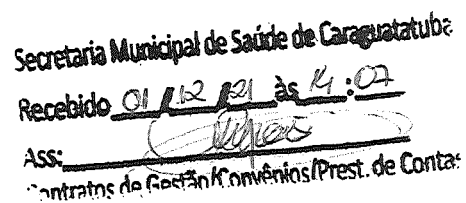 Secretaria Municipal de Saúde de Caraguatatuba
Recebido 01/12/21 às 14:07
Ass:
Contratos de Gestão/Convênios/Prest. de Contas